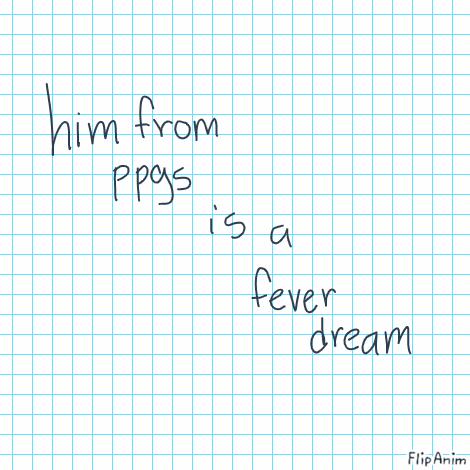 him from
ppgs
is a
fever
dream
FlipAnim